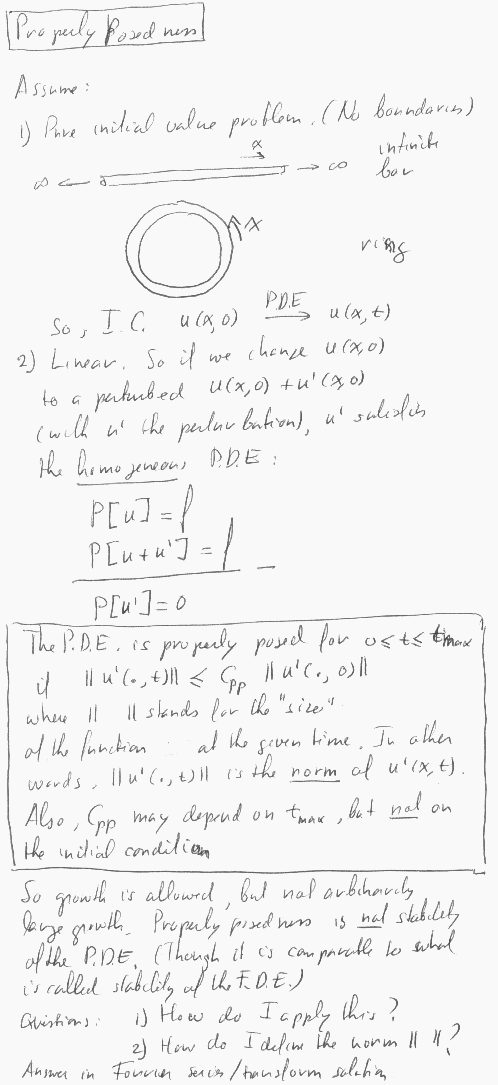 Properly Posedness
Assume:
1) Pure initial value problem. (No boundaries)
x
∞ ← → ∞ infinite
bar
x
ring
So, I.C. u(x,0) P.D.E → u(x,t)
2) Linear. So if we change u(x,0)
to a perturbed u(x,0) + u'(x,0)
(with u' the perturbation), u' satisfies
the homogeneous P.D.E:
P[u] = f
P[u+u'] = f
—
P[u'] = 0
The P.D.E. is properly posed for 0 ≤ t ≤ tmax
if ||u'(.,t)|| ≤ Cpp ||u'(.,0)||
where || || stands for the "size"
of the function at the given time. In other
words, ||u'(.,t)|| is the norm of u'(x,t).
Also, Cpp may depend on tmax, but not on
the initial condition
So growth is allowed, but not arbitrarily
large growth. Properly posedness is not stability
of the P.D.E. (Though it is comparable to what
is called stability of the F.D.E.)
Questions: 1) How do I apply this?
2) How do I define the norm || ||?
Answer in Fourier series/transform solution